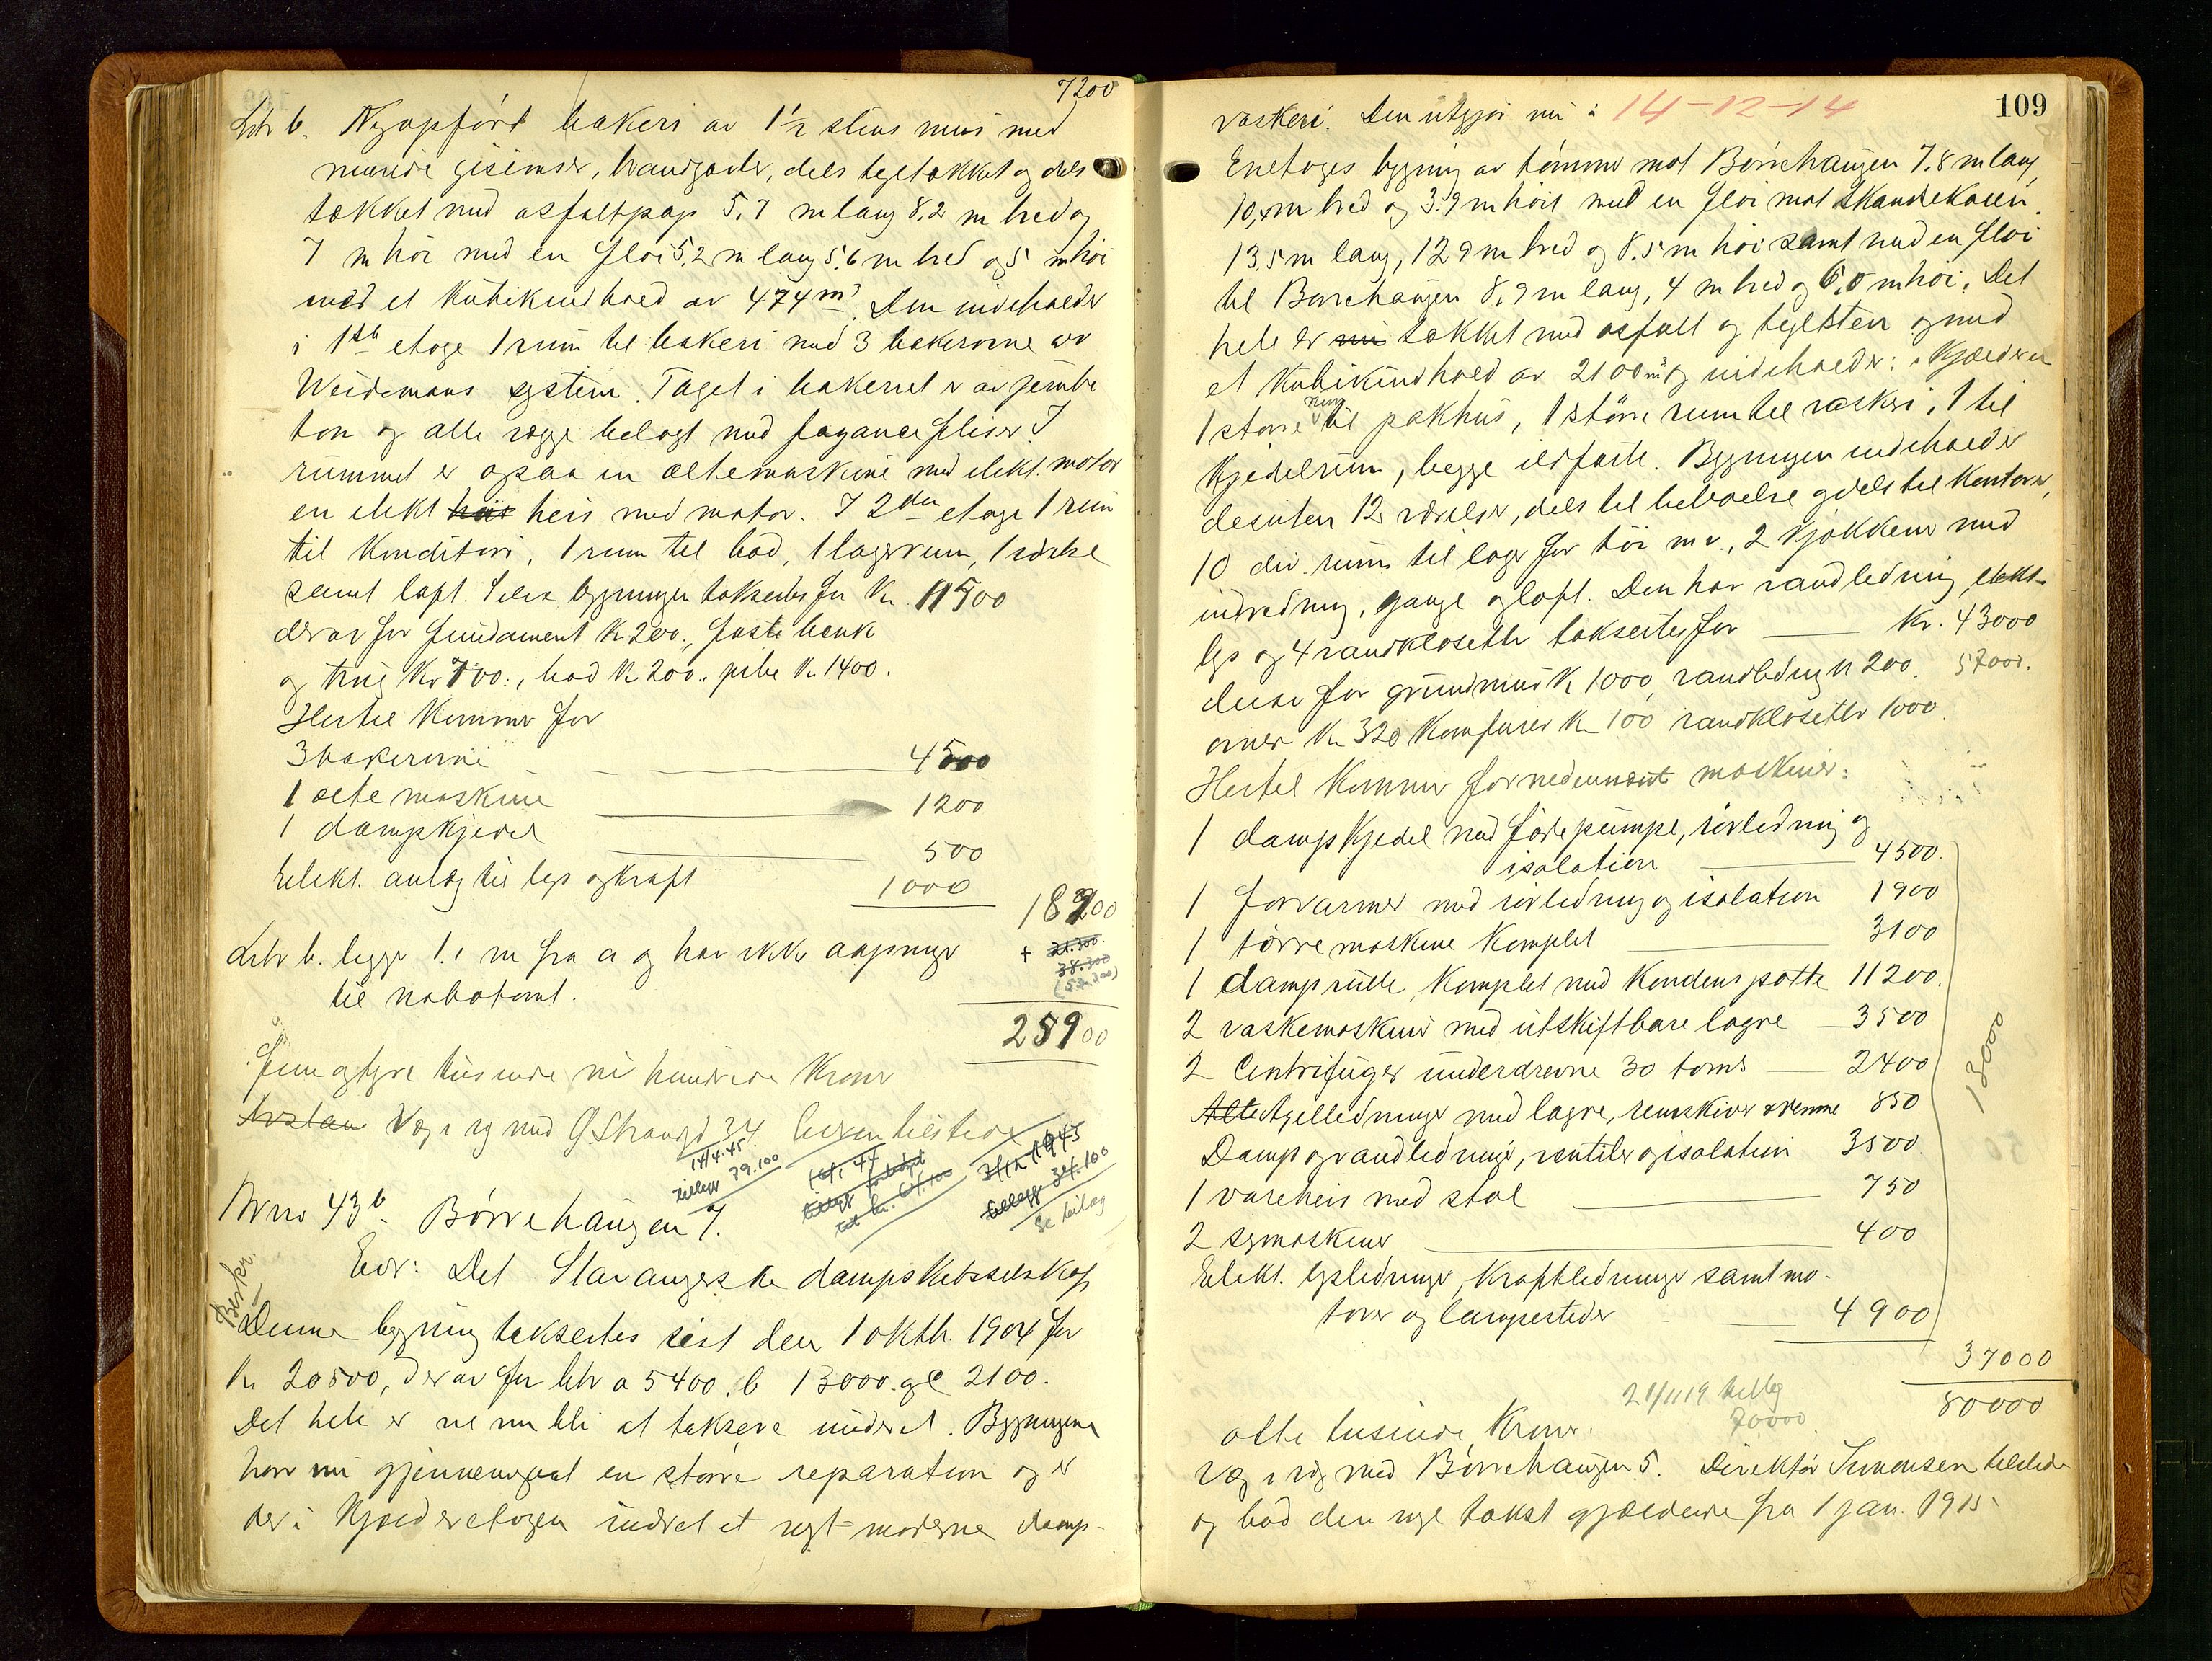 7200
Litr b. Nyopført bakeri av 1½ stens mur med
murede gesimser, brandgavler, dels tegltækket og dels
tækket med asfaltpap 5.7 m lang 8.2 m bred og
7 m høi med en fløi 5.2 m lang 5.6 m bred og 5 m høi
med et kubikindhold av 474 m³. Den indeholder
i 1ste etage 1 rum til bakeri med 3 bakerovne av
Weidemans system. Taget i bakeriet er av jernbe
ton og alle vægge belagt med fayancefliser. I
rummet er ogsaa en æltemaskine med elekt. motor
en elekt høi heis med motor. I 2den etage 1 rum
til konditori, 1 rum til bad, 1 lagerrum, 1 værelse
samt loft. Selve bygningen takseres for Kr. 11500
derav for fundament Kr 200., faste benk
og trug Kr 700., bad Kr 200., pibe Kr 1400.
Hertil kommer for
3 bakerovne 4500
1 æltemaskine 1200
1 dampkjedel 500
Elekt. anlæg til lys og kraft 1000
18700
Litr b. ligger 1.1 m fra a og har ikke aapninger
+ 21.300
38.300
til nabotomt.
25900
Fem og tyve tusinde ni hundrede Kroner
Avstan Væg i væg med Ø. Strandgd 34. Eieren tilstede
14/4.45
tillegg 39.100
16/1 44
tillegg forhøiet
tot kr. 61.100
31/12 1945
tillegg 34.100
Se bilag
Mno 43b. Børrehaugen 7.
Beskr.
Eier: Det Stavangerske dampskibsselskap
Denne bygning takseredes sist den 1 oktbr. 1904 for
Kr 20500, derav for litr a 5400, b 13000 og c 2100.
Det hele er nu at taksere under et. Bygningen
har nu gjennemgaat en større reparation og er
der i kjælderetagen indredet et nyt moderne damp-
109
vaskeri. Den utgjør nu: 14-12-14
Enetages bygning av tømmer mot Børrehaugen 7.8 m lang,
10,x m bred og 3.9 m høit med en fløi mot Skandsekaien
13.5 m lang, 12.9 m bred og 8.5 m høi samt med en fløi
til Børrehaugen 8.9 m lang, 4 m bred og 6.0 m høi. Det
hele er nu tækket med asfalt og teglsten og med
et kubikindhold av 2100 m³ og indeholder: i kjælderen
1 større rum til pakhus, 1 større rum til vaskeri, 1 til
kjedelrum, begge ildfaste. Bygningen indeholder
desuten 12 værelser, dels til beboelse og dels til kontorer,
10 div. rum til lager for tøi m.v., 2 kjøkkener med
indredning, gange og loft. Den har vandledning, elekt-
lys og 4 vandklosetter takseres for Kr. 43000
derav for grundmur Kr 1000, vandledning Kr 200. 57000.
ovner Kr 320 komfurer Kr 100 vandklosetter 1000.
Hertil kommer for nedennævnt maskiner:
1 dampkjedel med fødepumpe, rørledning og
isolation 4500.
1 forvarmer med rørledning og isolation 1900
1 tørremaskine komplet 3100
1 damprulle, komplet med kondenspotte 11200.
2 vaskemaskiner med utskiftbare lagre 3500
2 Centrifuger underdrevne 30 toms 2400
Akselledninger med lagre, remskiver & remme 850
Damp og vandledninger, ventiler og isolation 3500.
1 vareheis med stol 750
2 symaskiner 400
Elekt. lysledninger, kraftledninger samt mo-
torer og lampesteder 4900
13000
37000
80000
21/11 19 tillæg
70000
otte tusinde Kroner.
Væg i væg med Børrehaugen 5. Direktør Simonsen tilstede
og bad den nye takst gjældende fra 1 jan. 1915.